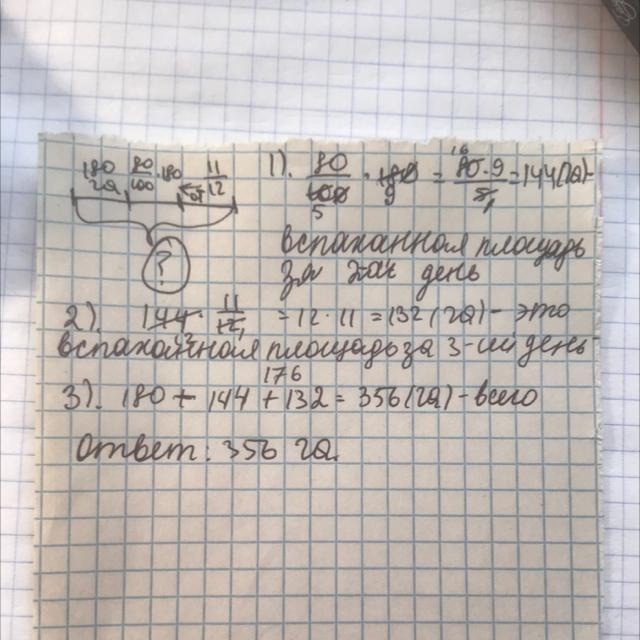 180 га 80/100 · 180 11/12
?
1). 80/100 · 180 = 80 · 9/5 = 144(га)-
5 9 16 1
вспаханная площадь
за 2ой день
2). 144 · 11/12 = 12 · 11 = 132 (га) - это
вспаханная площадь за 3-ий день
176
3). 180 + 144 + 132 = 356 (га) - всего
Ответ: 356 га.